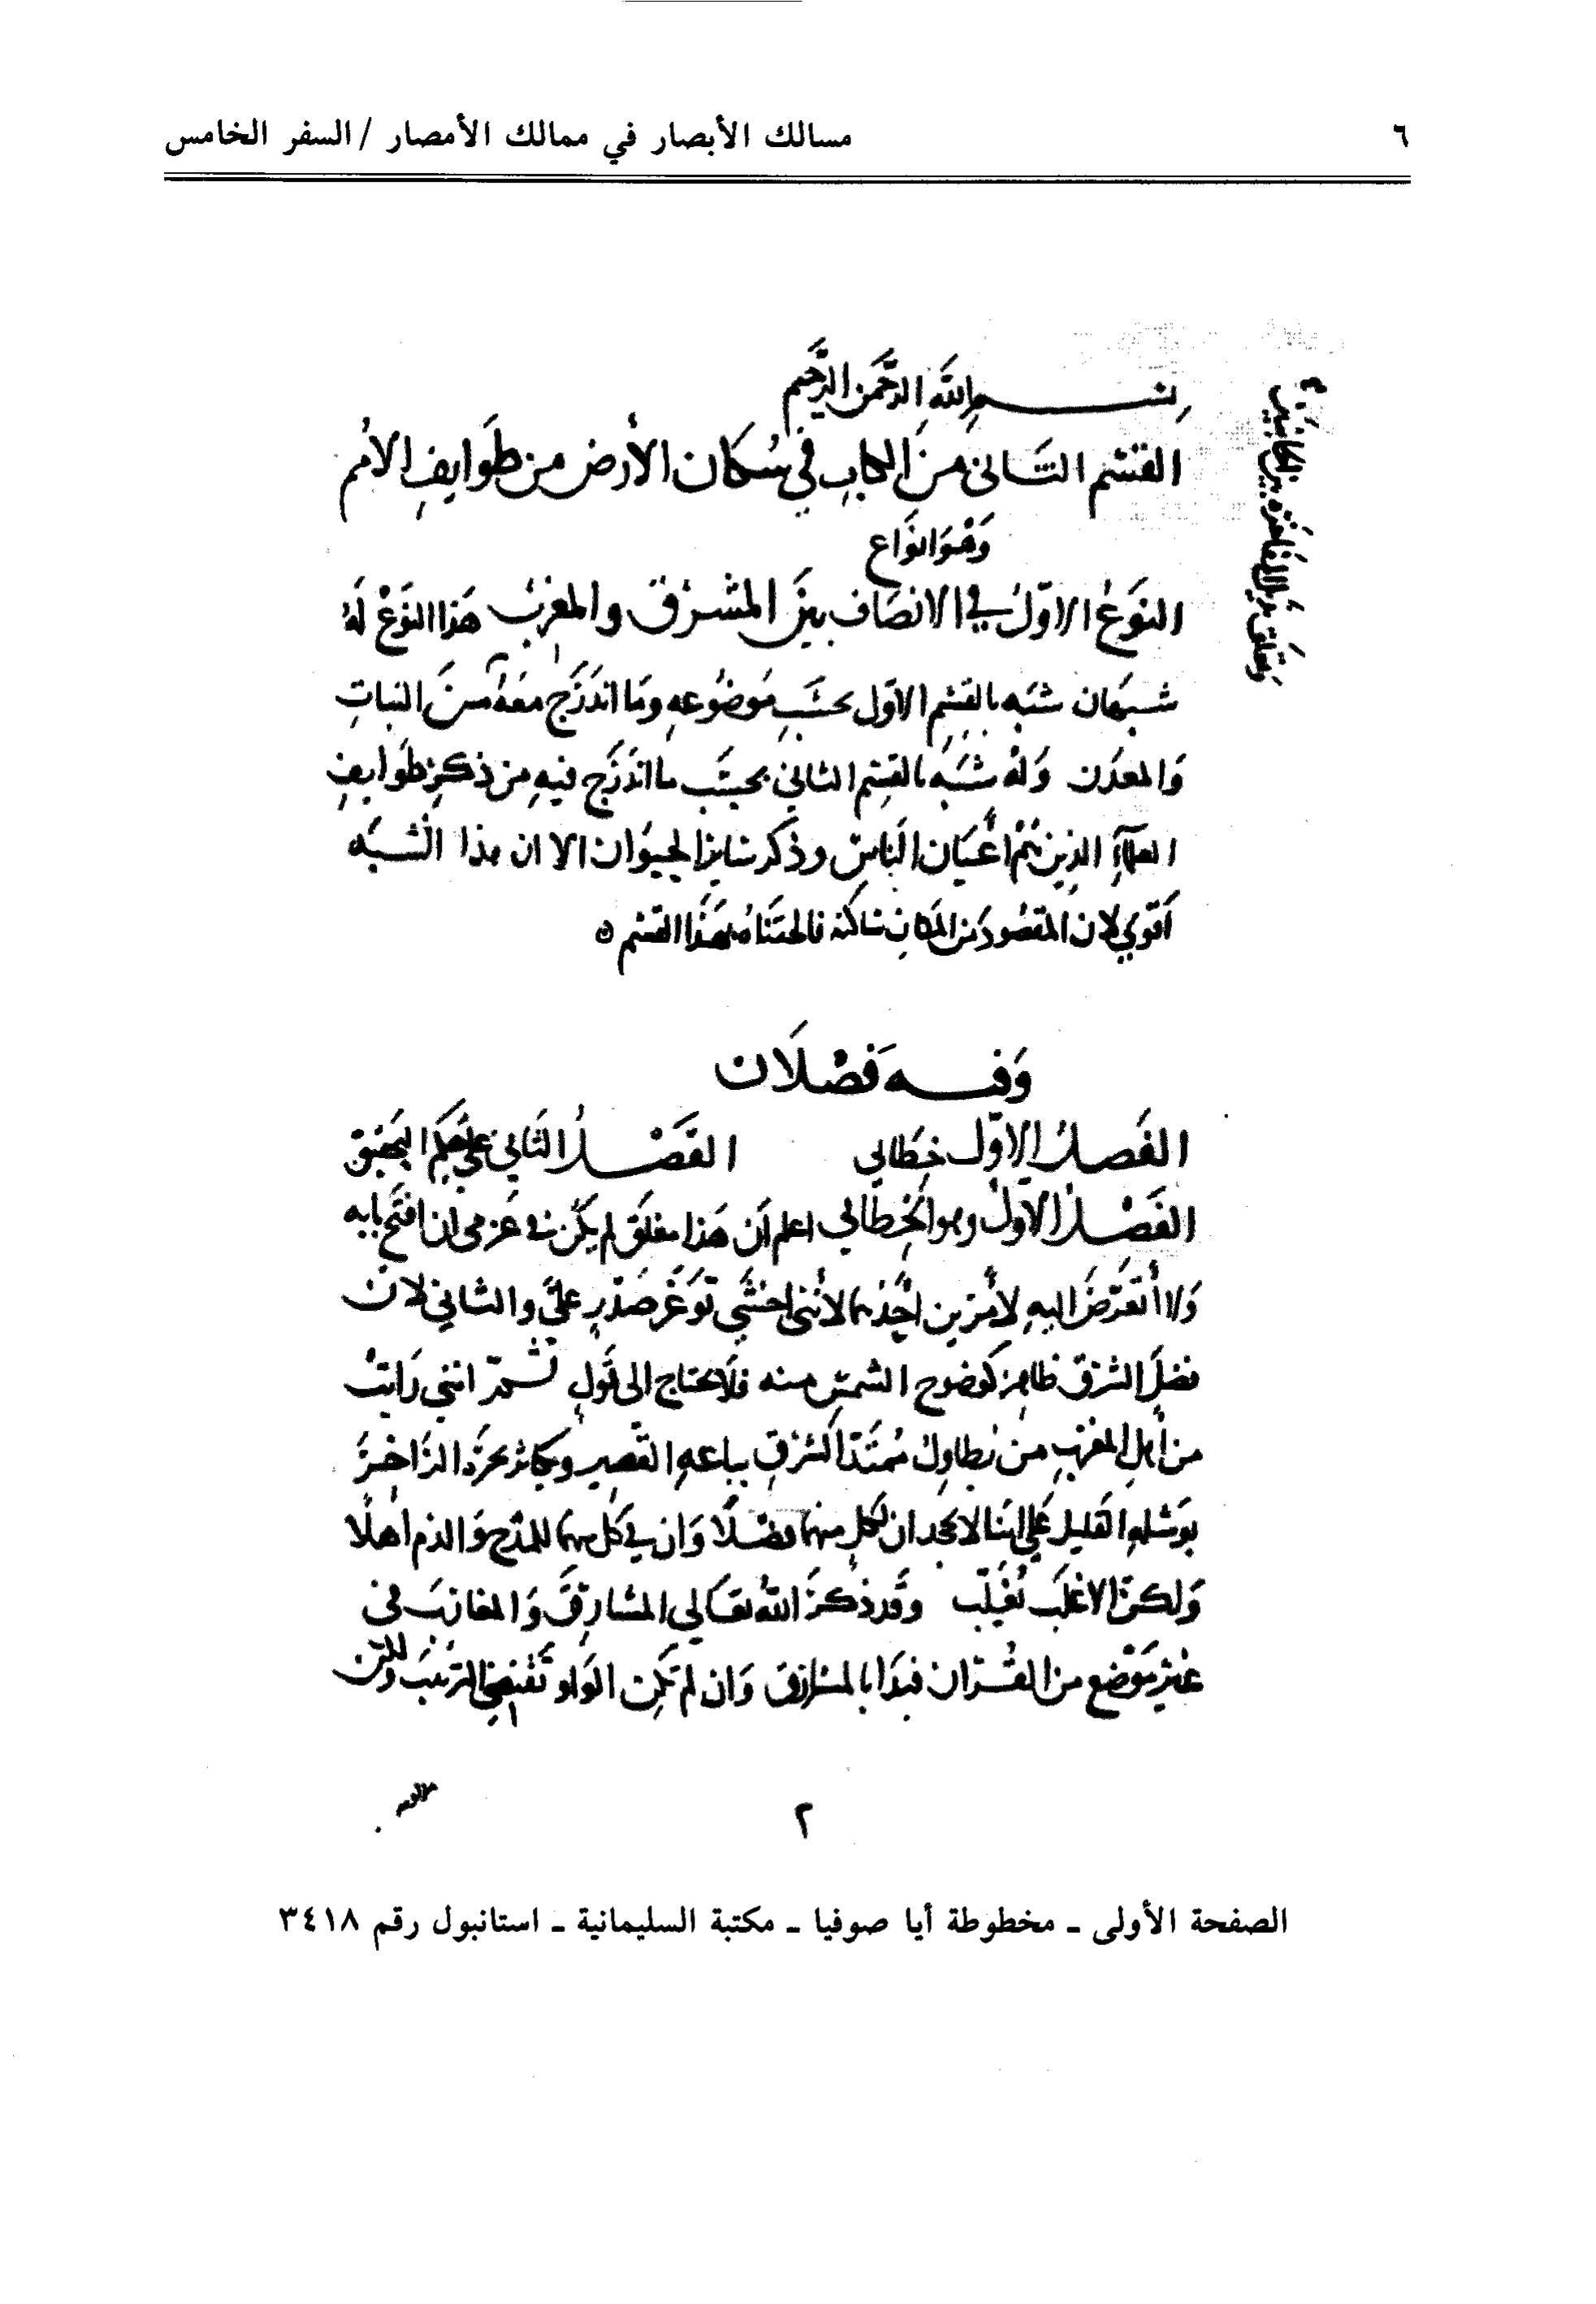 ٦
مسالك الأبصار في ممالك الأمصار / السفر الخامس
بسم الله الرحمن الرحيم
القسم الثاني من الكتاب في سكان الأرض من طوايف الأمم
وهو انواع
النوع الأول في الانصاف بين المشرق والمغرب هذا النوع له
شبهان شبه بالقسم الاول بحسب موضوعه وما اندرج معه من النبات
والمعدن وله شبه بالقسم الثاني بحسب ما اندرج فيه من ذكر طوايف
العلماء الذين هم أعيان الناس وذكر ساير الحيوان الا ان هذا الشبه
أقوي لان المقصود من المكان ساكنه فالحقناه بهذا القسم ه
وفيه فصلان
الفصل الأول خطابي الفصل الثاني على حكم التحقيق
الفصل الأول وهو الخطابي اعلم أن هذا مغلق لم يكن في عزمي ان افتح بابه
ولا أتعرض اليه لأمرين أحدهما لأنني اخشي توغر صدر علي والثاني لان
فضل الشرق ظاهر كوضوح الشمس منه فلا يحتاج الى قول ثم انني رايت
من أهل المغرب من يطاول ممتد الشرق بباعه القصير ويكاثر بحره الزاخر
بوشله القليل على اننا لا نجحد ان لكل منهما فضلا وان في كل منهما للمدح والذم أهلا
ولكن الاغلب يغلب وقد ذكر الله تعالي المشارق والمغارب في
غير موضع من القرآن فبدأ بالمشارق وان لم تكن الواو تقتضي الترتيب ولكن
٢
الصفحة الأولى ـ مخطوطة أيا صوفيا ـ مكتبة السليمانية ـ استانبول رقم ٣٤١٨